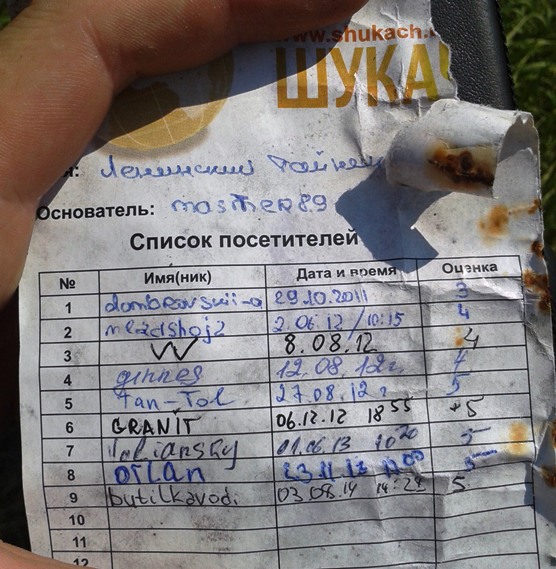 www.shukach.
ШУКА
Ленинский
Основатель: master89
Список посетителей
№ Имя(ник) Дата и время Оценка
1 dombrovskii-a 29.10.2011 3
2 2.06.12 / 10:15 4
3 W 8.08.12 4
4 ginnes 12.08.12г. 4
5 Tan-Tol 27.08.12г 5
6 GRANIT 06.12.12 18 55 +5
7 01.06.13 10 20 5
8 orlan 5
9 butilkavodi 03.08.14 14:29 5
10
11
12